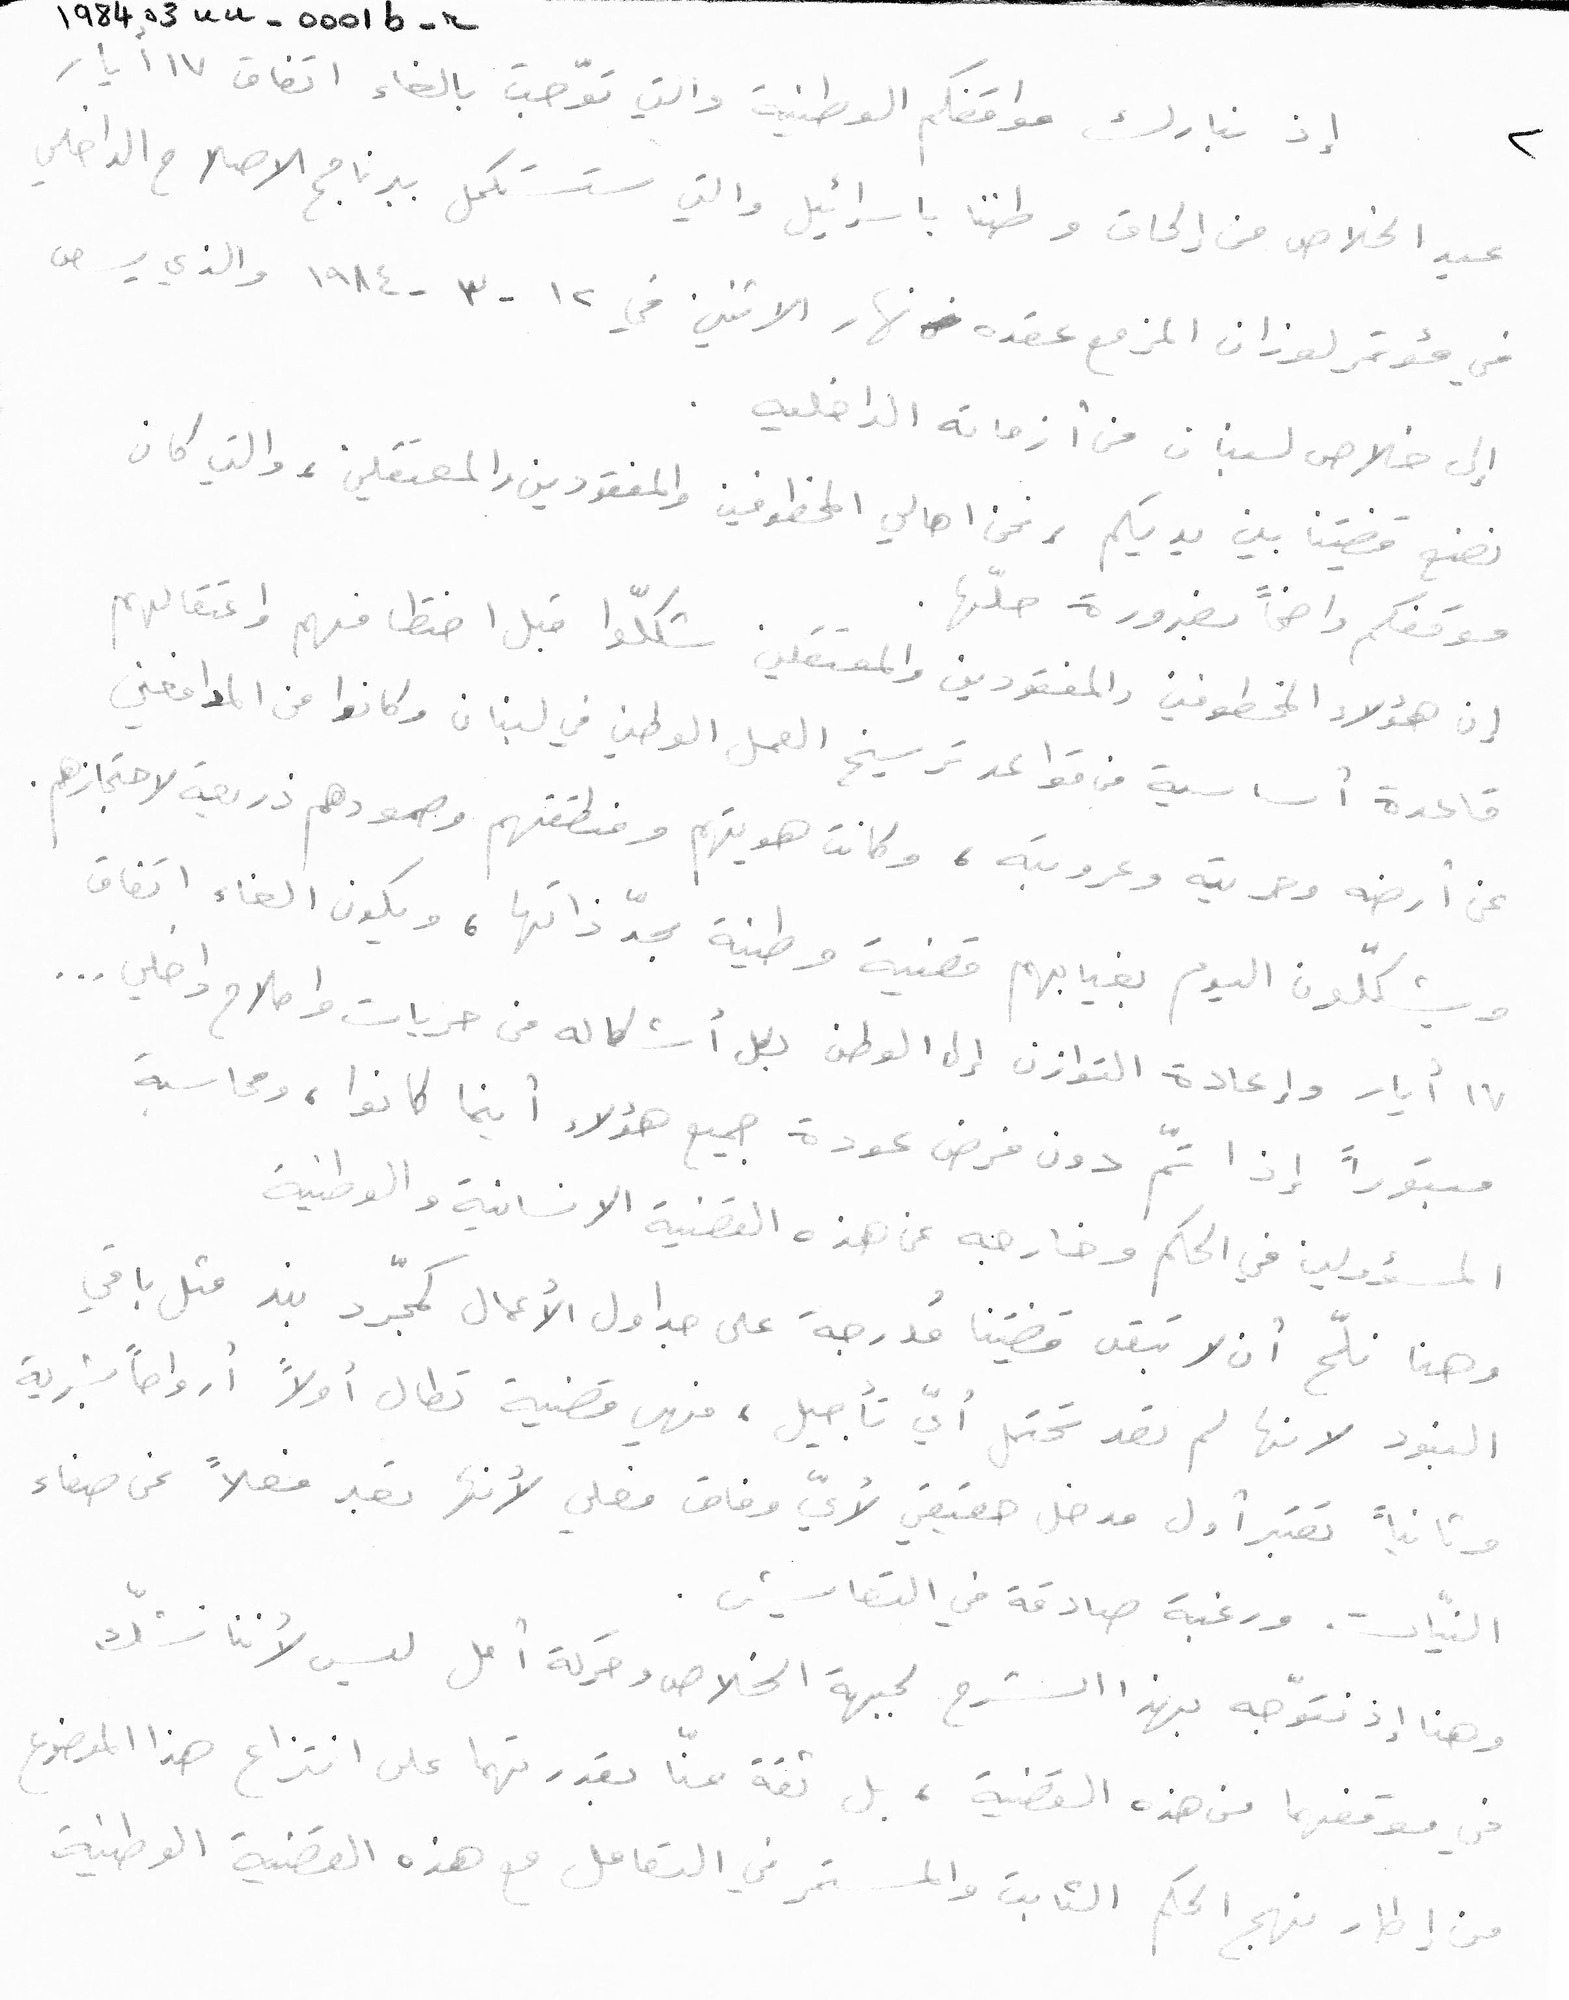 198403uu-0001b-r
٢
إذ نبارك مواقفكم الوطنية والتي توّجت بالغاء اتفاق ١٧ أيار
عيد الخلاص من إلحاق وطننا باسرائيل والتي ستستكمل ببرنامج الاصلاح الداخلي
في مؤتمر لوزان المزمع عقده نهار الاثنين في ١٢ - ٣ - ١٩٨٤ والذي
إلى خلاص لبنان من أزماته الداخليه .
نضع قضيتنا بين يديكم ، نحن اهالي المخطوفين والمفقودين والمعتقلين ، والتي كان
موقفكم واضحاً بضرورة حلّها .
إن هؤلاء المخطوفين والمفقودين والمعتقلين شكلّوا قبل اختطافهم واعتقالهم
قاعدة أساسية من قواعد ترسيخ العمل الوطني في لبنان وكانوا من المدافعين
عن أرضه وحريته وعروبته ، وكانت هويتهم ومنطقتهم وصمودهم ذريعة لاحتجازهم .
ويشكلّون اليوم بغيابهم قضية وطنية بحدّ ذاتها ، ويكون الغاء اتفاق
١٧ أيار وإعادة التوازن إلى الوطن بكل أشكاله من حريات واصلاح داخلي ...
مبتوراً إذا تمّ دون فرض عودة جميع هؤلاء أينما كانوا ، ومحاسبة
المسؤولين في الحكم وخارجه عن هذه القضية الانسانية والوطنية
وهنا نلّح أن لا تبقى قضيتنا مُدرجة على جداول الأعمال كمجّرد بند مثل باقي
البنود لانها لم تعد تحتمل أيّ تأجيل ، فهي قضية تطال أولاً أرواحاً بشرية
وثانياً تعتبر أول مدخل حقيقي لأيّ وفاق فعلي لأنها تعبر فعلاً عن صفاء
النيّات . ورغبة صادقة في التعايش .
وهنا إذ نتوّجه بهذا الشرح لجبهة الخلاص وحركة أمل ليس لأننا نشّك
في موقفهما من هذه القضية ، بل ثقة منّا بقدرتهما على انتزاع هذا الموضوع
من إطار نهج الحكم الثابت والمستمر في التعامل مع هذه القضية الوطنية